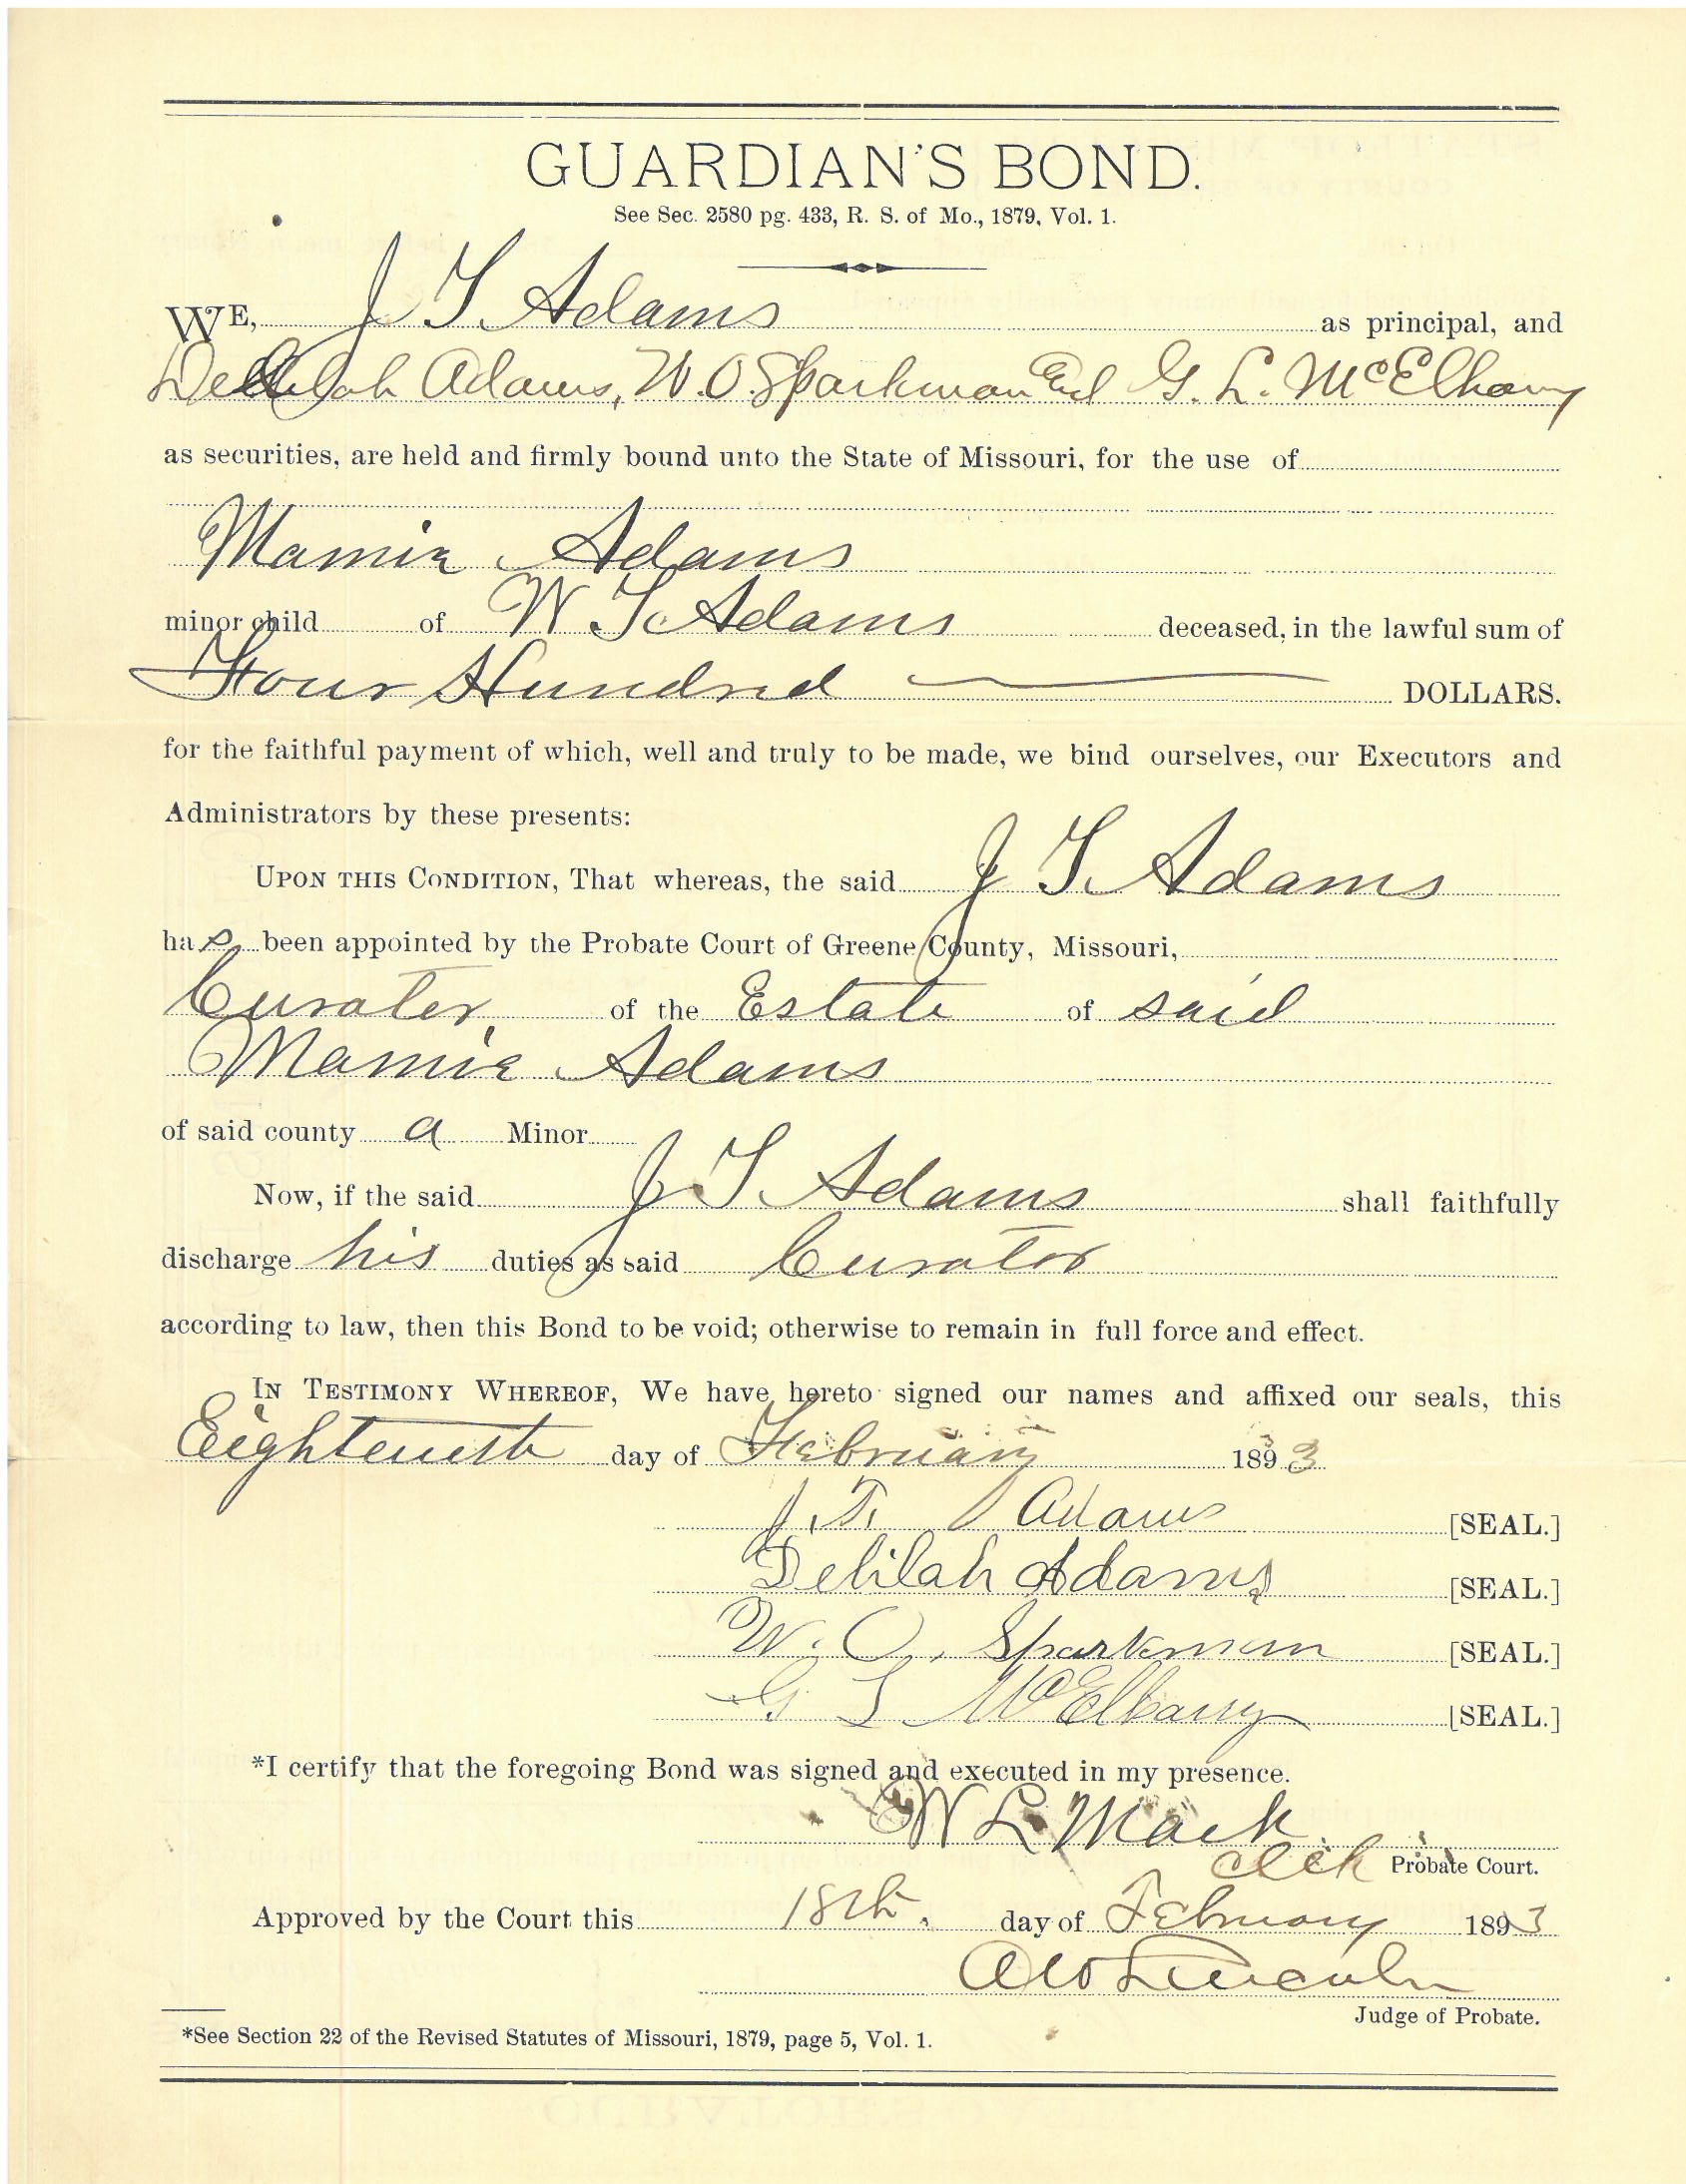 GUARDIAN'S BOND.
See Sec. 2580 pg. 433, R. S. of Mo., 1879, Vol. 1.
WE, J T Adams as principal, and
Delilah Adams, W. O. Sparkman and G. L. McElhany
as securities, are held and firmly bound unto the State of Missouri, for the use of
Mamie Adams
minor child of W T Adams deceased, in the lawful sum of
Four Hundred DOLLARS.
for the faithful payment of which, well and truly to be made, we bind ourselves, our Executors and
Administrators by these presents:
UPON THIS CONDITION, That whereas, the said J T. Adams
has been appointed by the Probate Court of Greene County, Missouri,
Curator of the Estate of said
Mamie Adams
of said county a Minor
Now, if the said J T Adams shall faithfully
discharge his duties as said Curator
according to law, then this Bond to be void; otherwise to remain in full force and effect.
IN TESTIMONY WHEREOF, We have hereto signed our names and affixed our seals, this
Eighteenth day of February 1893
J. T. Adams [SEAL.]
Delilah Adams [SEAL.]
W. O. Sparkman [SEAL.]
G L McElhany [SEAL.]
*I certify that the foregoing Bond was signed and executed in my presence.
W L Mack
Clek Probate Court.
Approved by the Court this 18th. day of February 1893
A W Lincoln
Judge of Probate.
*See Section 22 of the Revised Statutes of Missouri, 1879, page 5, Vol. 1.